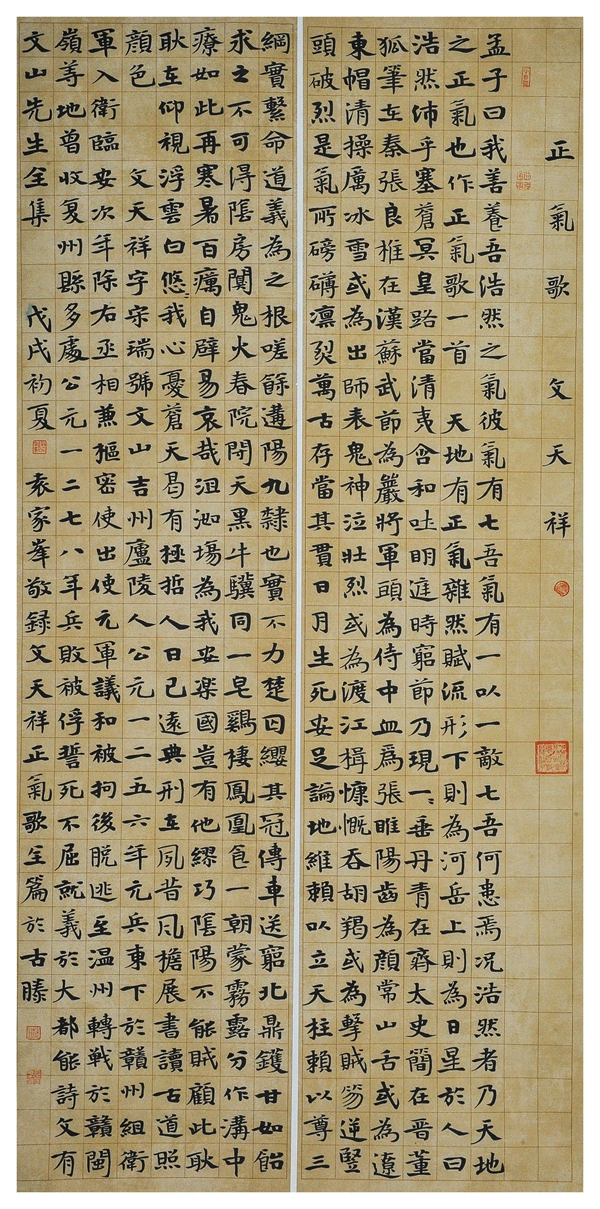 正氣歌 文天祥
孟子曰我善養吾浩然之氣彼氣有七吾氣有一以一敵七吾何患焉况浩然者乃天地
之正氣也作正氣歌一首 天地有正氣雜然賦流形下則為河岳上則為日星於人曰
浩然沛乎塞蒼冥皇路當清夷含和吐明庭時窮節乃現一〻垂丹青在齊太史簡在晉董
狐筆在秦張良椎在漢蘇武節為嚴將軍頭為侍中血為張睢陽齒為顏常山舌或為遼
東帽清操厲冰雪或為出師表鬼神泣壯烈或為渡江楫慷慨吞胡羯或為擊賊笏逆豎
頭破烈是氣所磅礴凛裂萬古存當其貫日月生死安足論地維賴以立天柱賴以尊三
綱實繫命道義為之根嗟餘遘陽九隸也實不力楚囚纓其冠傳車送窮北鼎鑊甘如飴
求之不可得陰房闃鬼火春院閉天黑牛驥同一皂鷄棲鳳凰食一朝蒙霧露分作溝中
療如此再寒暑百癘自辟易哀哉沮洳場為我安樂國豈有他繆巧陰陽不能賊顧此耿
耿在仰視浮雲白悠〻我心憂蒼天曷有極哲人日已遠典刑在夙昔風檐展書讀古道照
顏色 文天祥字宋瑞號文山吉州廬陵人公元一二五六年元兵東下於贛州組衛
軍入衛臨安次年除右丞相兼樞密使出使元軍議和被拘後脫逃至温州轉戰於贛閩
嶺等地曾收复州縣多處公元一二七八年兵敗被俘誓死不屈就義於大都能詩文有
文山先生全集 戊戌初夏 袁家峰敬録文天祥正氣歌全篇於古滕